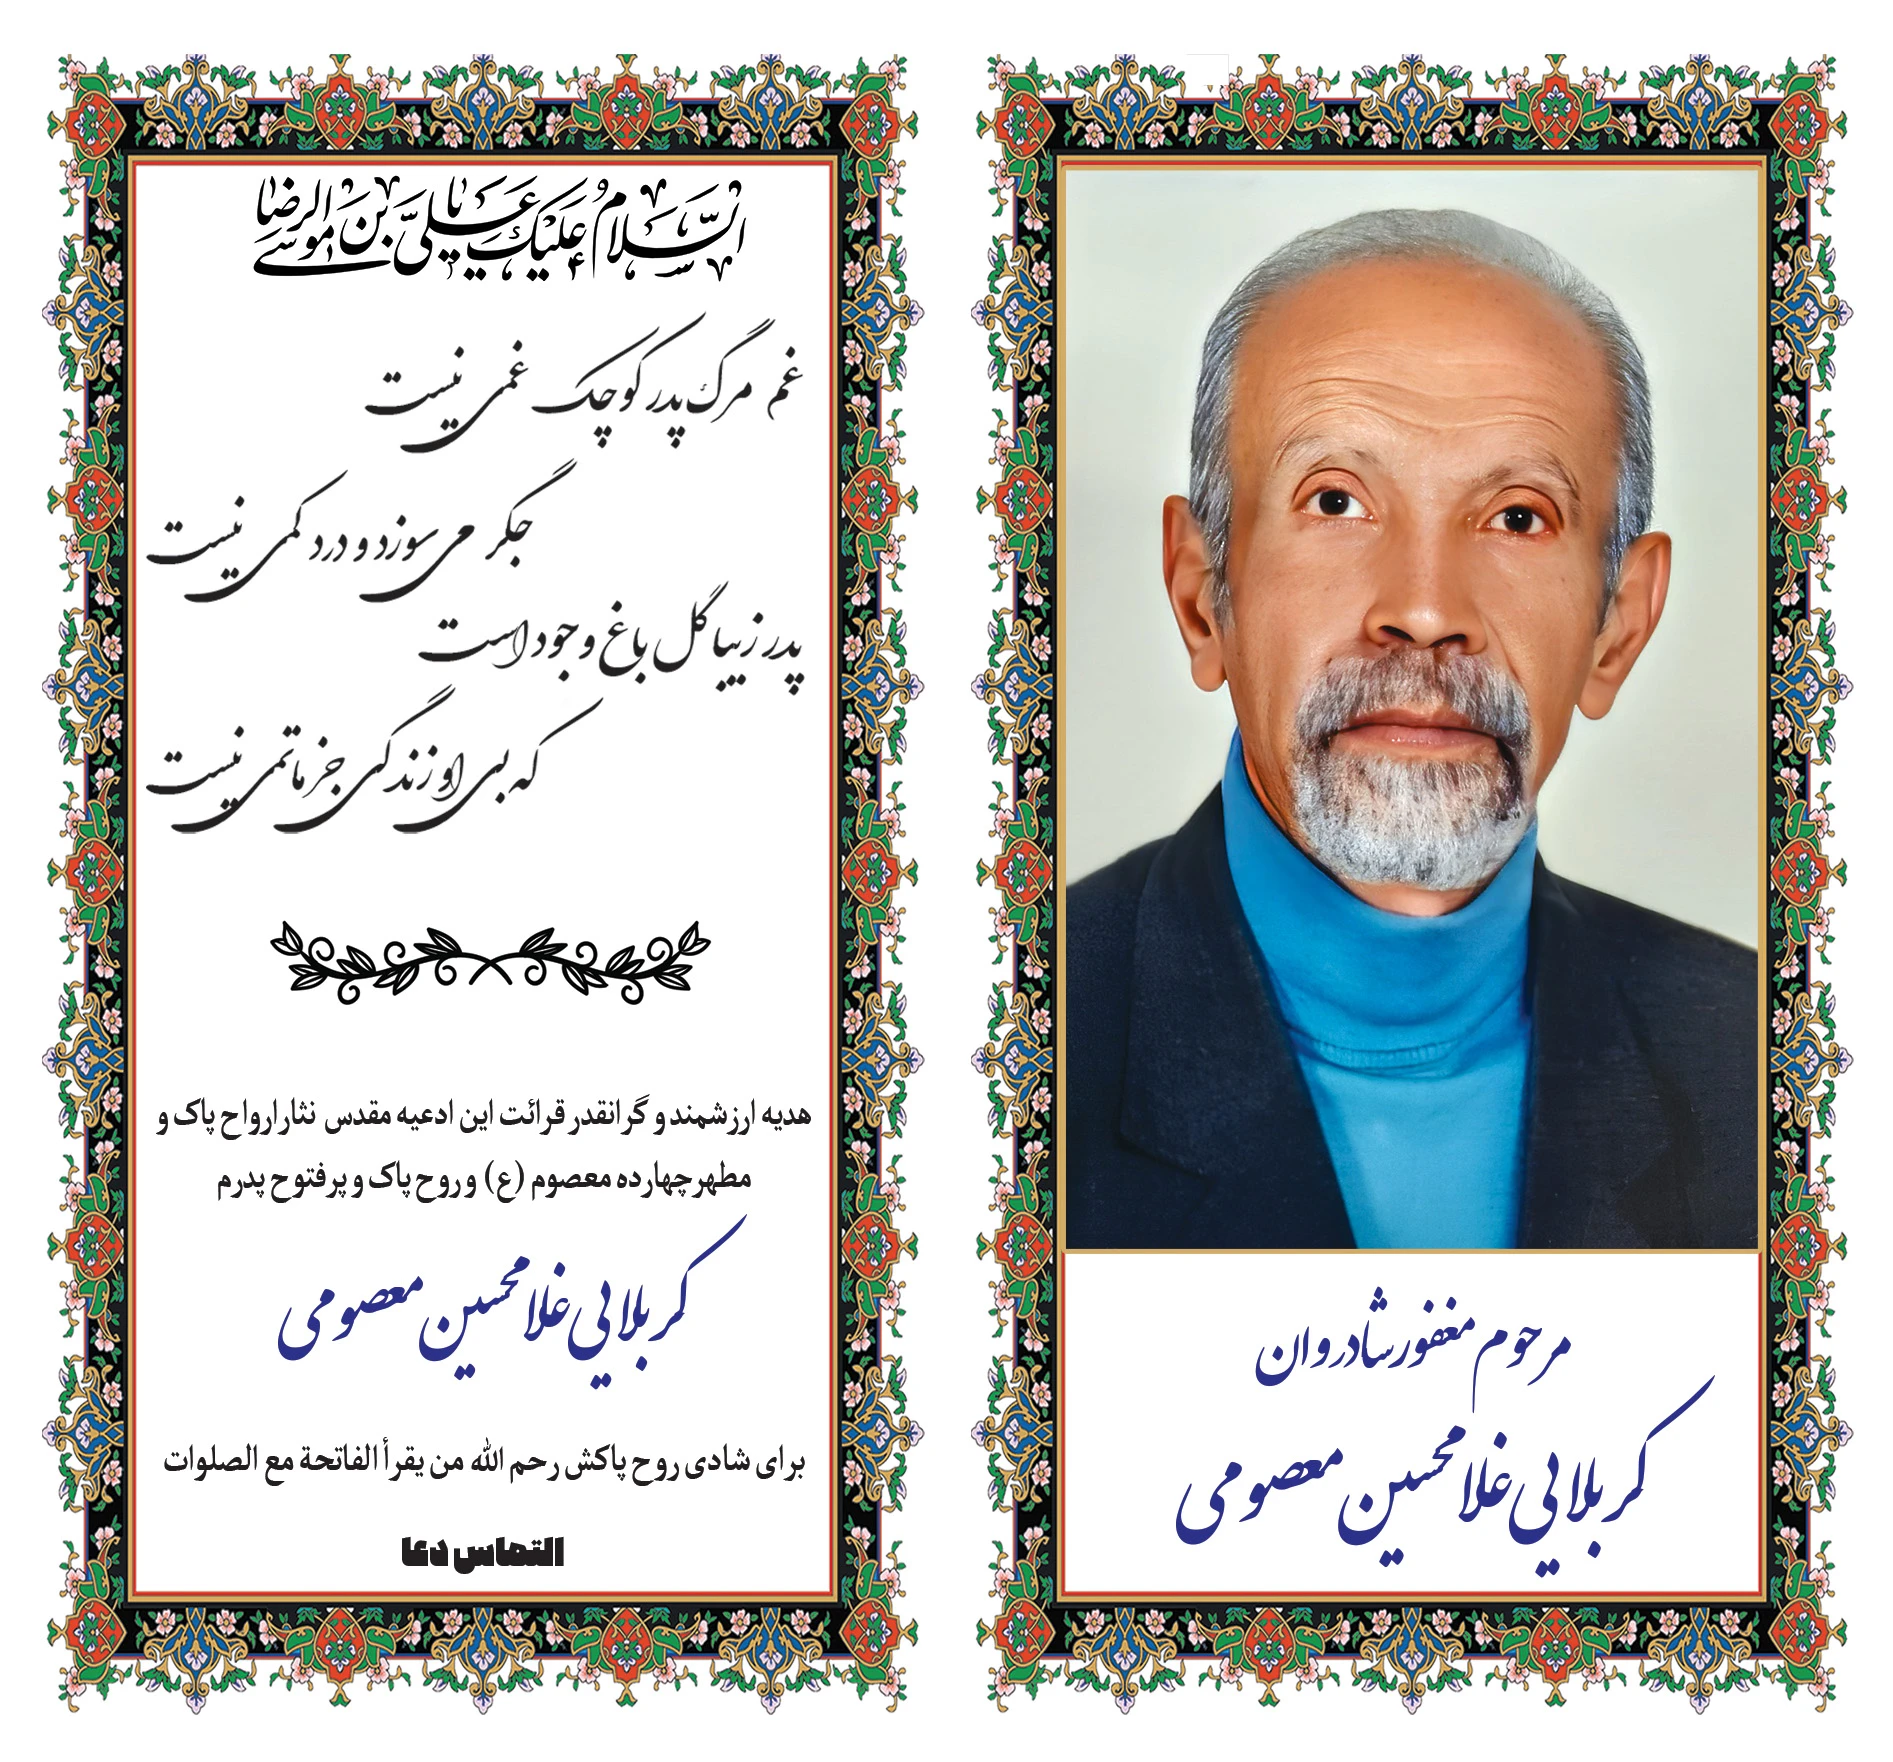 السلام علیک یا علی بن موسی الرضا
غم مرگ پدر کوچک غمی نیست
جگر می سوزد و درد کمی نیست
پدر زیبا گل باغ وجود است
که بی او زندگی جز ماتمی نیست
هدیه ارزشمند و گرانقدر قرائت این ادعیه مقدس نثار ارواح پاک و
مطهر چهارده معصوم (ع) و روح پاک و پرفتوح پدرم
کربلایی غلامحسین معصومی
برای شادی روح پاکش رحم الله من یقرأ الفاتحة مع الصلوات
التماس دعا
مرحوم مغفور شادروان
کربلایی غلامحسین معصومی